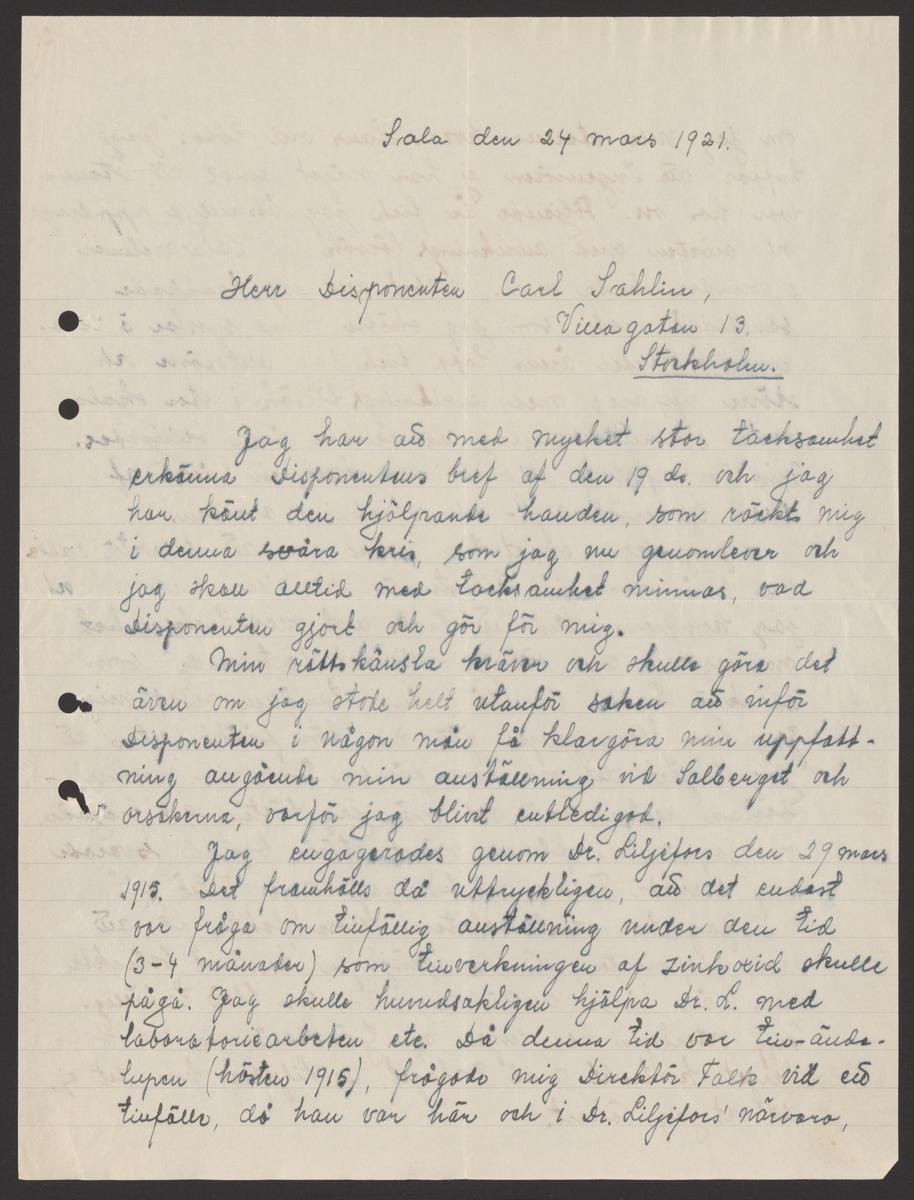 Sala den 24 mars 1921.
Herr Disponenten Carl Sahlin,
Villagatan 13.
Stockholm.
Jag har att med mycket stor tacksamhet
erkänna Disponentens bref af den 19 ds. och jag
har känt den hjälpande handen, som räckts mig
i denna svåra kris, som jag nu genomlever och
jag skall alltid med tacksamhet minnas, vad
Disponenten gjort och gör för mig.
Min rättskänsla kräver och skulle göra det
även om jag stode helt utanför saken att inför
Disponenten i någon mån få klargöra min uppfatt-
ning angående min anställning vid Salberget och
orsakerna, varför jag blivit entledigad.
Jag engagerades genom Dr. Liljefors den 29 mars
1915. Det framhölls då uttryckligen, att det endast
var fråga om tillfällig anställning under den tid
(3-4 månader) som tillverkningen af zinkoxid skulle
pågå. Jag skulle hufvudsakligen hjälpa Dr. L. med
laboratoriearbeten etc. Då denna tid var till-ända-
lupen (hösten 1915), frågade mig Direktör Falk vid ett
tillfälle, då han var här och i Dr. Liljefors' närvaro,